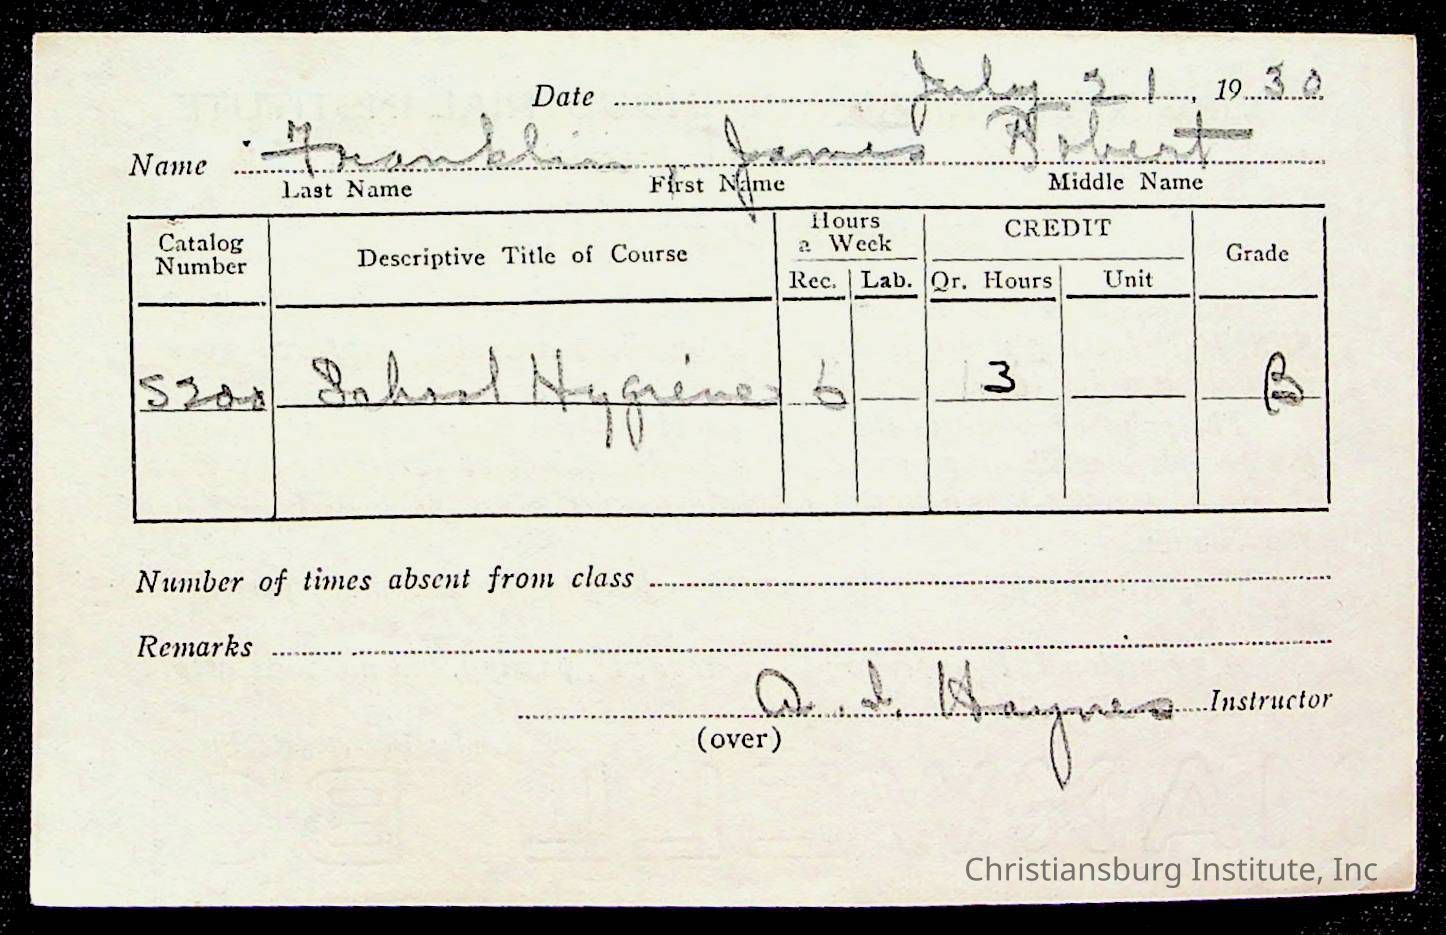 Date July 21, 1930
Name Franklin James Robert
Last Name First Name Middle Name
Catalog Number Descriptive Title of Course Hours a Week CREDIT Grade
Rec. Lab. Qr. Hours Unit
S200 School Hygiene 6 3 B
Number of times absent from class
Remarks
A. I. Haynes Instructor
(over)
Christiansburg Institute, Inc